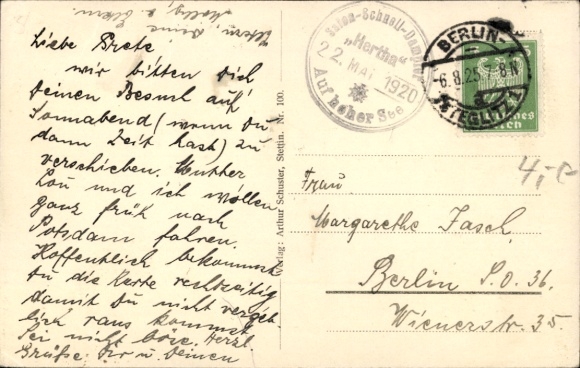 Liebe Grete
wir bitten dich
deinen Besuch auf
Sonnabend (wenn du
dann Zeit hast) zu
verschieben. Mutter
Lou und ich wollen
ganz früh nach
Potsdam fahren.
Hoffentlich bekommst
du die Karte rechtzeitig
damit du nicht vergeb-
lich raus kommst.
Sei nicht böse. Herzl.
Grüße. Dir u. deinen
Eltern, deine
Verlag: Arthur Schuster, Stettin. Nr. 100.
Salon-Schnell-Dampfer
"Hertha"
22. MAI 1920
Auf hoher See
BERLIN-
-6.8.25. 8-N
a
STEGLITZ 1
4,-
Frau
Margarethe Jasch,
Berlin S.O. 36.
Wienerstr. 35.